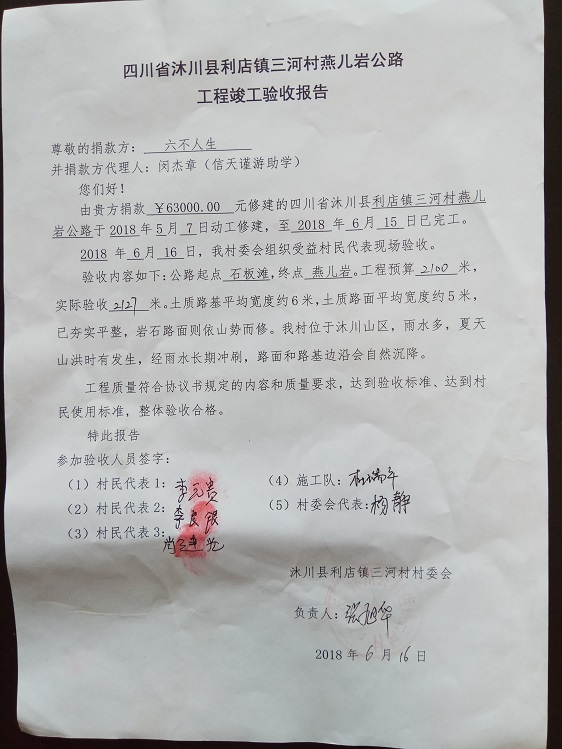 四川省沐川县利店镇三河村燕儿岩公路
工程竣工验收报告
尊敬的捐款方：六不人生
并捐款方代理人：闵杰章（信天谨游助学）
您们好！
由贵方捐款 ￥63000.00 元修建的四川省沐川县利店镇三河村燕儿
岩公路于 2018 年 5 月 7 日动工修建，至 2018 年 6 月 15 日已完工。
2018 年 6 月 16 日，我村委会组织受益村民代表现场验收。
验收内容如下：公路起点 石板滩，终点 燕儿岩。工程预算 2100 米，
实际验收 2127 米。土质路基平均宽度约 6 米，土质路面平均宽度约 5 米，
已夯实平整，岩石路面则依山势而修。我村位于沐川山区，雨水多，夏天
山洪时有发生，经雨水长期冲刷，路面和路基边沿会自然沉降。
工程质量符合协议书规定的内容和质量要求，达到验收标准、达到村
民使用标准，整体验收合格。
特此报告
参加验收人员签字：
（1）村民代表 1：李元贵 （4）施工队：杜瑞平
（2）村民代表 2：李良银 （5）村委会代表：杨静
（3）村民代表 3：
沐川县利店镇三河村村委会
负责人：张旭华
2018 年 6 月 16 日